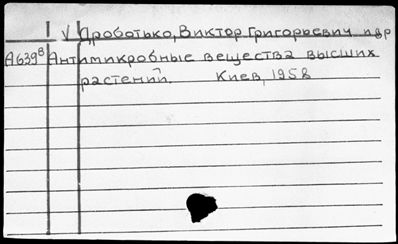 V Дроботько, Виктор Григорьевич и др
А639⁸ Антимикробные вещества высших
растений. Киев, 1958